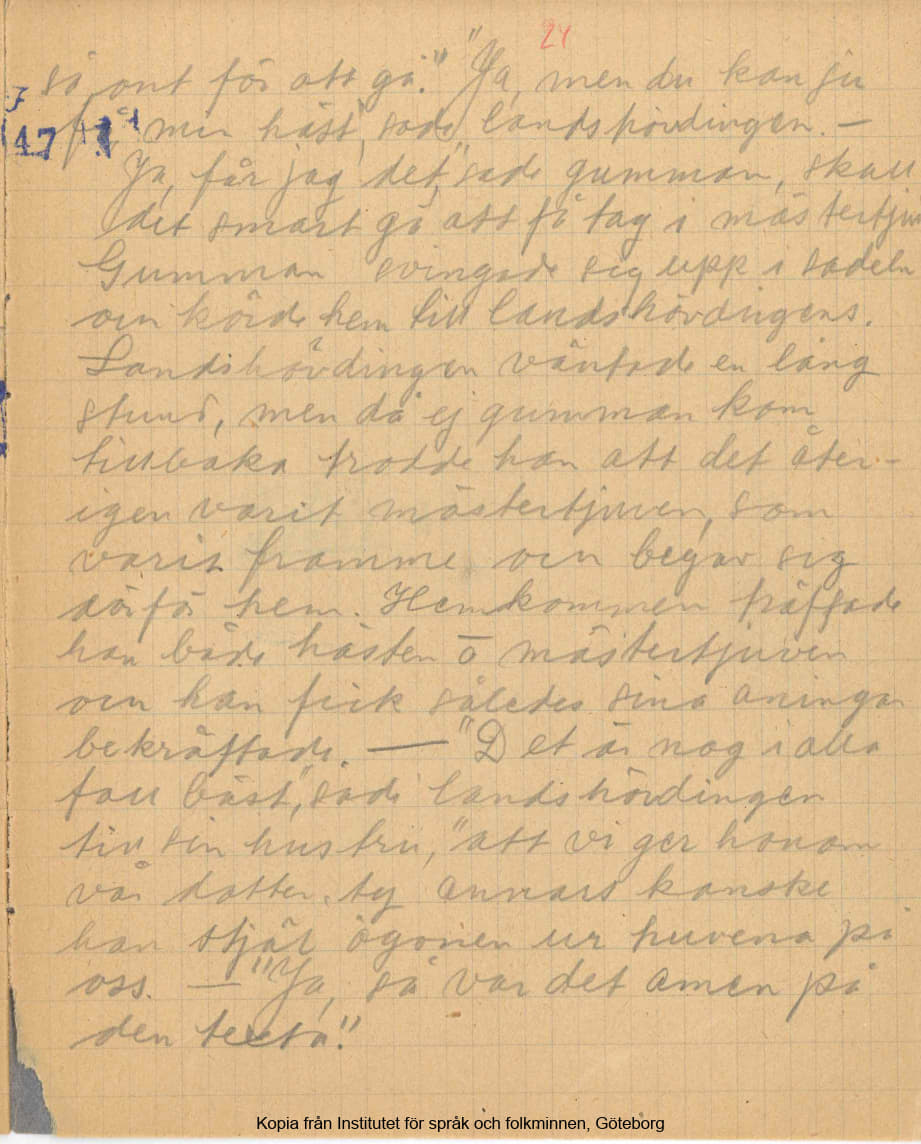 24
så ont för att gå." "Ja, men du kan ju
få min häst", sade landshövdingen. —
Ja, får jag det," sade gumman, skall
det snart gå att få tag i mästertju
Gumman svingade sig upp i sadeln
och körde hem till landshövdingens.
Landshövdingen väntade en lång
stund, men då ej gumman kom
tillbaka trodde han att det åter-
igen varit mästertjuven, som
varit framme och begav sig
därför hem. Hemkommen träffade
han både hästen o mästertjuven
och han fick således sina aningar
bekräftade. — "Det är nog i alla
fall bäst," sade landshövdingen
till sin hustru, "att vi ger honom
vår dotter, ty annars kanske
han stjäl ögonen ur huvena på
oss. — "Ja, så var det amen på
den texta".
Kopia från Institutet för språk och folkminnen, Göteborg